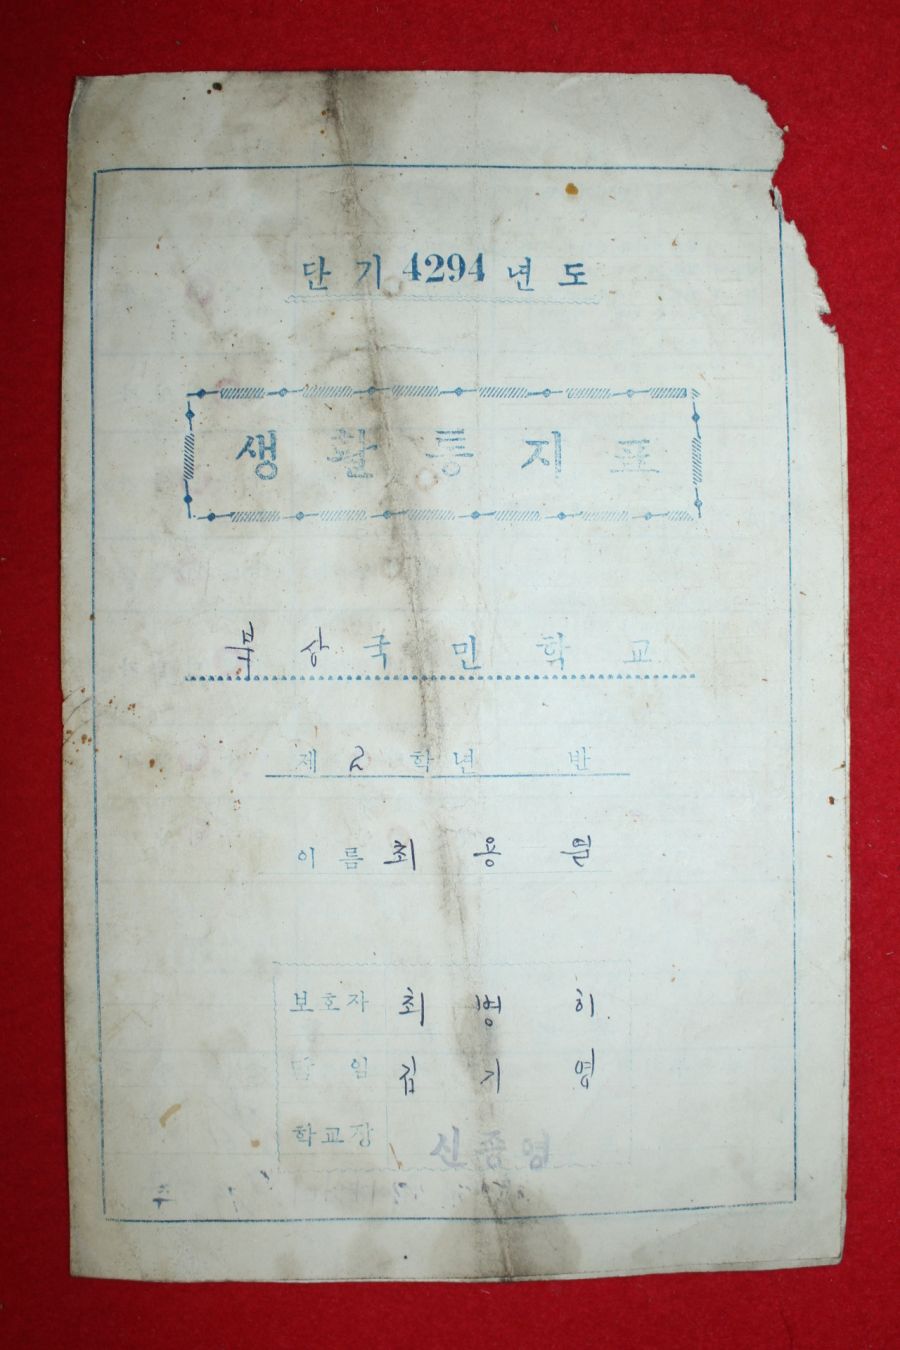 단기 4294 년도
생활통지표
북상국민학교
제 2 학년 반
이름 최용
보호자 최병히
담임 김기영
학교장 신종영